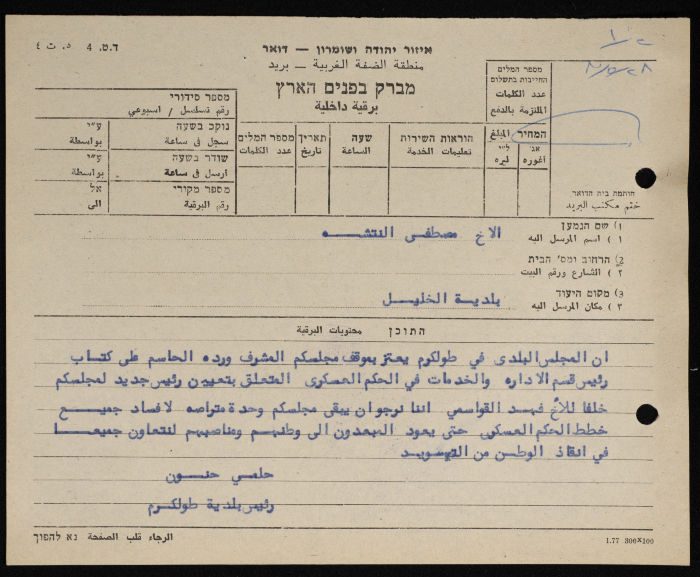 ד.ט. 4 ٥. ت ٤
איזור יהודה ושומרון – דואר
منطقة الضفة الغربية – بريد
מברק בפנים הארץ
برقية داخلية
מספר המלים
החייבות בתשלום
عدد الكلمات
الملتزمة بالدفع
המחיר المبلغ
אג' ل"י
اغوره ليره
חותמת בית הדואר
ختم مكتب البريد
הוראות השירות
تعليمات الخدمة
שעה
الساعة
תאריך
تاريخ
מספר המלים
عدد الكلمات
מספר סידורי
رقم تسلسل / اسبوعي
נוקב בשעה ע"י
سجل في ساعة بواسطة
שודר בשעה ע"י
ارسل في ساعة بواسطة
מספר מקורי אל
رقم البرقية الى
1) שם הנמען
١ ) اسم المرسل اليه
الاخ مصطفى النتشه
2) הרחוב ומס' הבית
٢ ) الشارع ورقم البيت
3) מקום היעוד
٣ ) مكان المرسل اليه
بلدية الخليل
התוכן محتويات البرقية
ان المجلس البلدي في طولكرم يعتز بموقف مجلسكم المشرف ورده الحاسم على كتاب
رئيس قسم الاداره والخدمات في الحكم العسكري المتعلق بتعيين رئيس جديد لمجلسكم
خلفا للأخ فهد القواسمي اننا نرجو ان يبقى مجلسكم وحدة متراصه لافساد جميع
خطط الحكم العسكري حتى يعود المبعدون الى وطنهم ومناصبهم لنتعاون جميعا
في انقاذ الوطن من التهويد
حلمي حنون
رئيس بلدية طولكرم
الرجاء قلب الصفحة נא להפוך
1.77 300X100